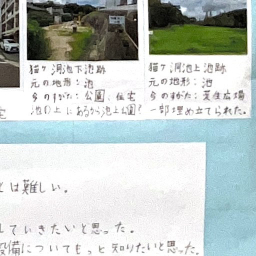 猫ヶ洞池下池跡
元の地形：池
今のすがた：公園、住宅
池の上にあるから池上公園？
猫ヶ洞池上池跡
元の地形：池
今のすがた：芝生広場
一部埋め立てられた。
宅
とは難しい。
していきたいと思った。
設備についてもっと知りたいと思った。